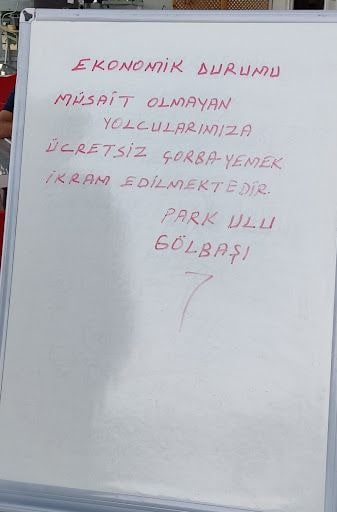 EKONOMİK DURUMU
MÜSAİT OLMAYAN
YOLCULARIMIZA
ÜCRETSİZ ÇORBA-YEMEK
İKRAM EDİLMEKTEDİR.
PARK ULU
GÖLBAŞI
7